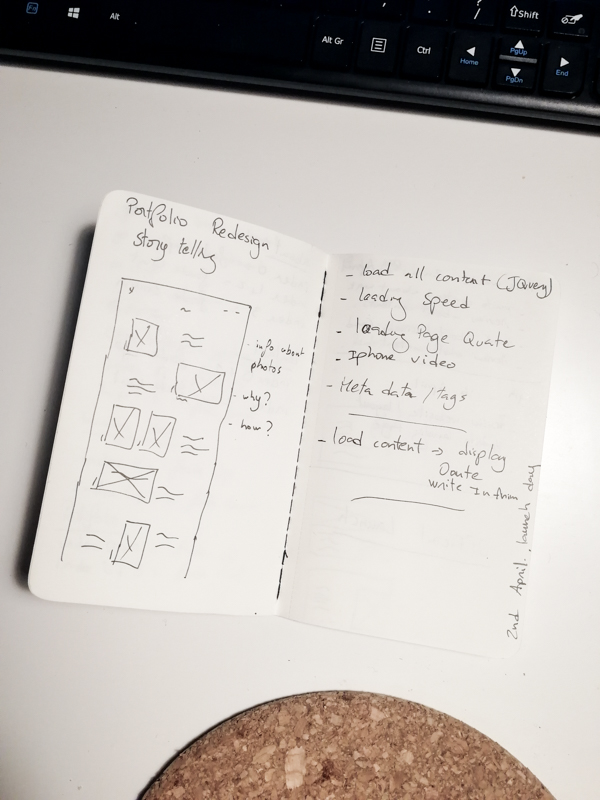 Fn
Alt
Alt Gr
Ctrl
?
/
Shift
Home
PgUp
PgDn
End
Portfolio Redesign
Story telling
- info about
photos
- why?
- how?
- load all content (JQuery)
- loading Speed
- loading Page Quate
- Iphone video
- Meta data / tags
- load content → display
Qoute
write
2nd April. launch day